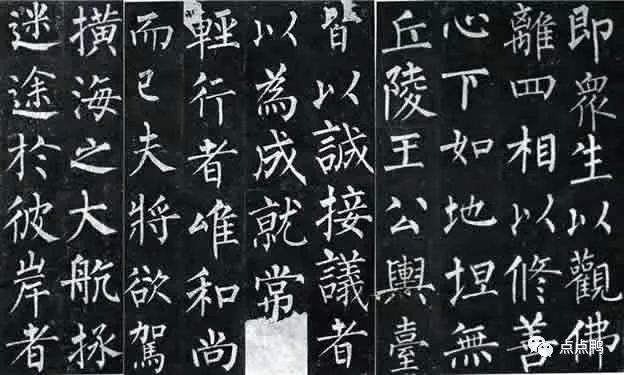 即眾生以觀佛
離四相以修善
心下如地坦無
丘陵王公輿臺
皆以誠接議者
以為成就常
輕行者唯和尚
而已夫將欲駕
橫海之大航拯
迷途於彼岸者
点点鸭